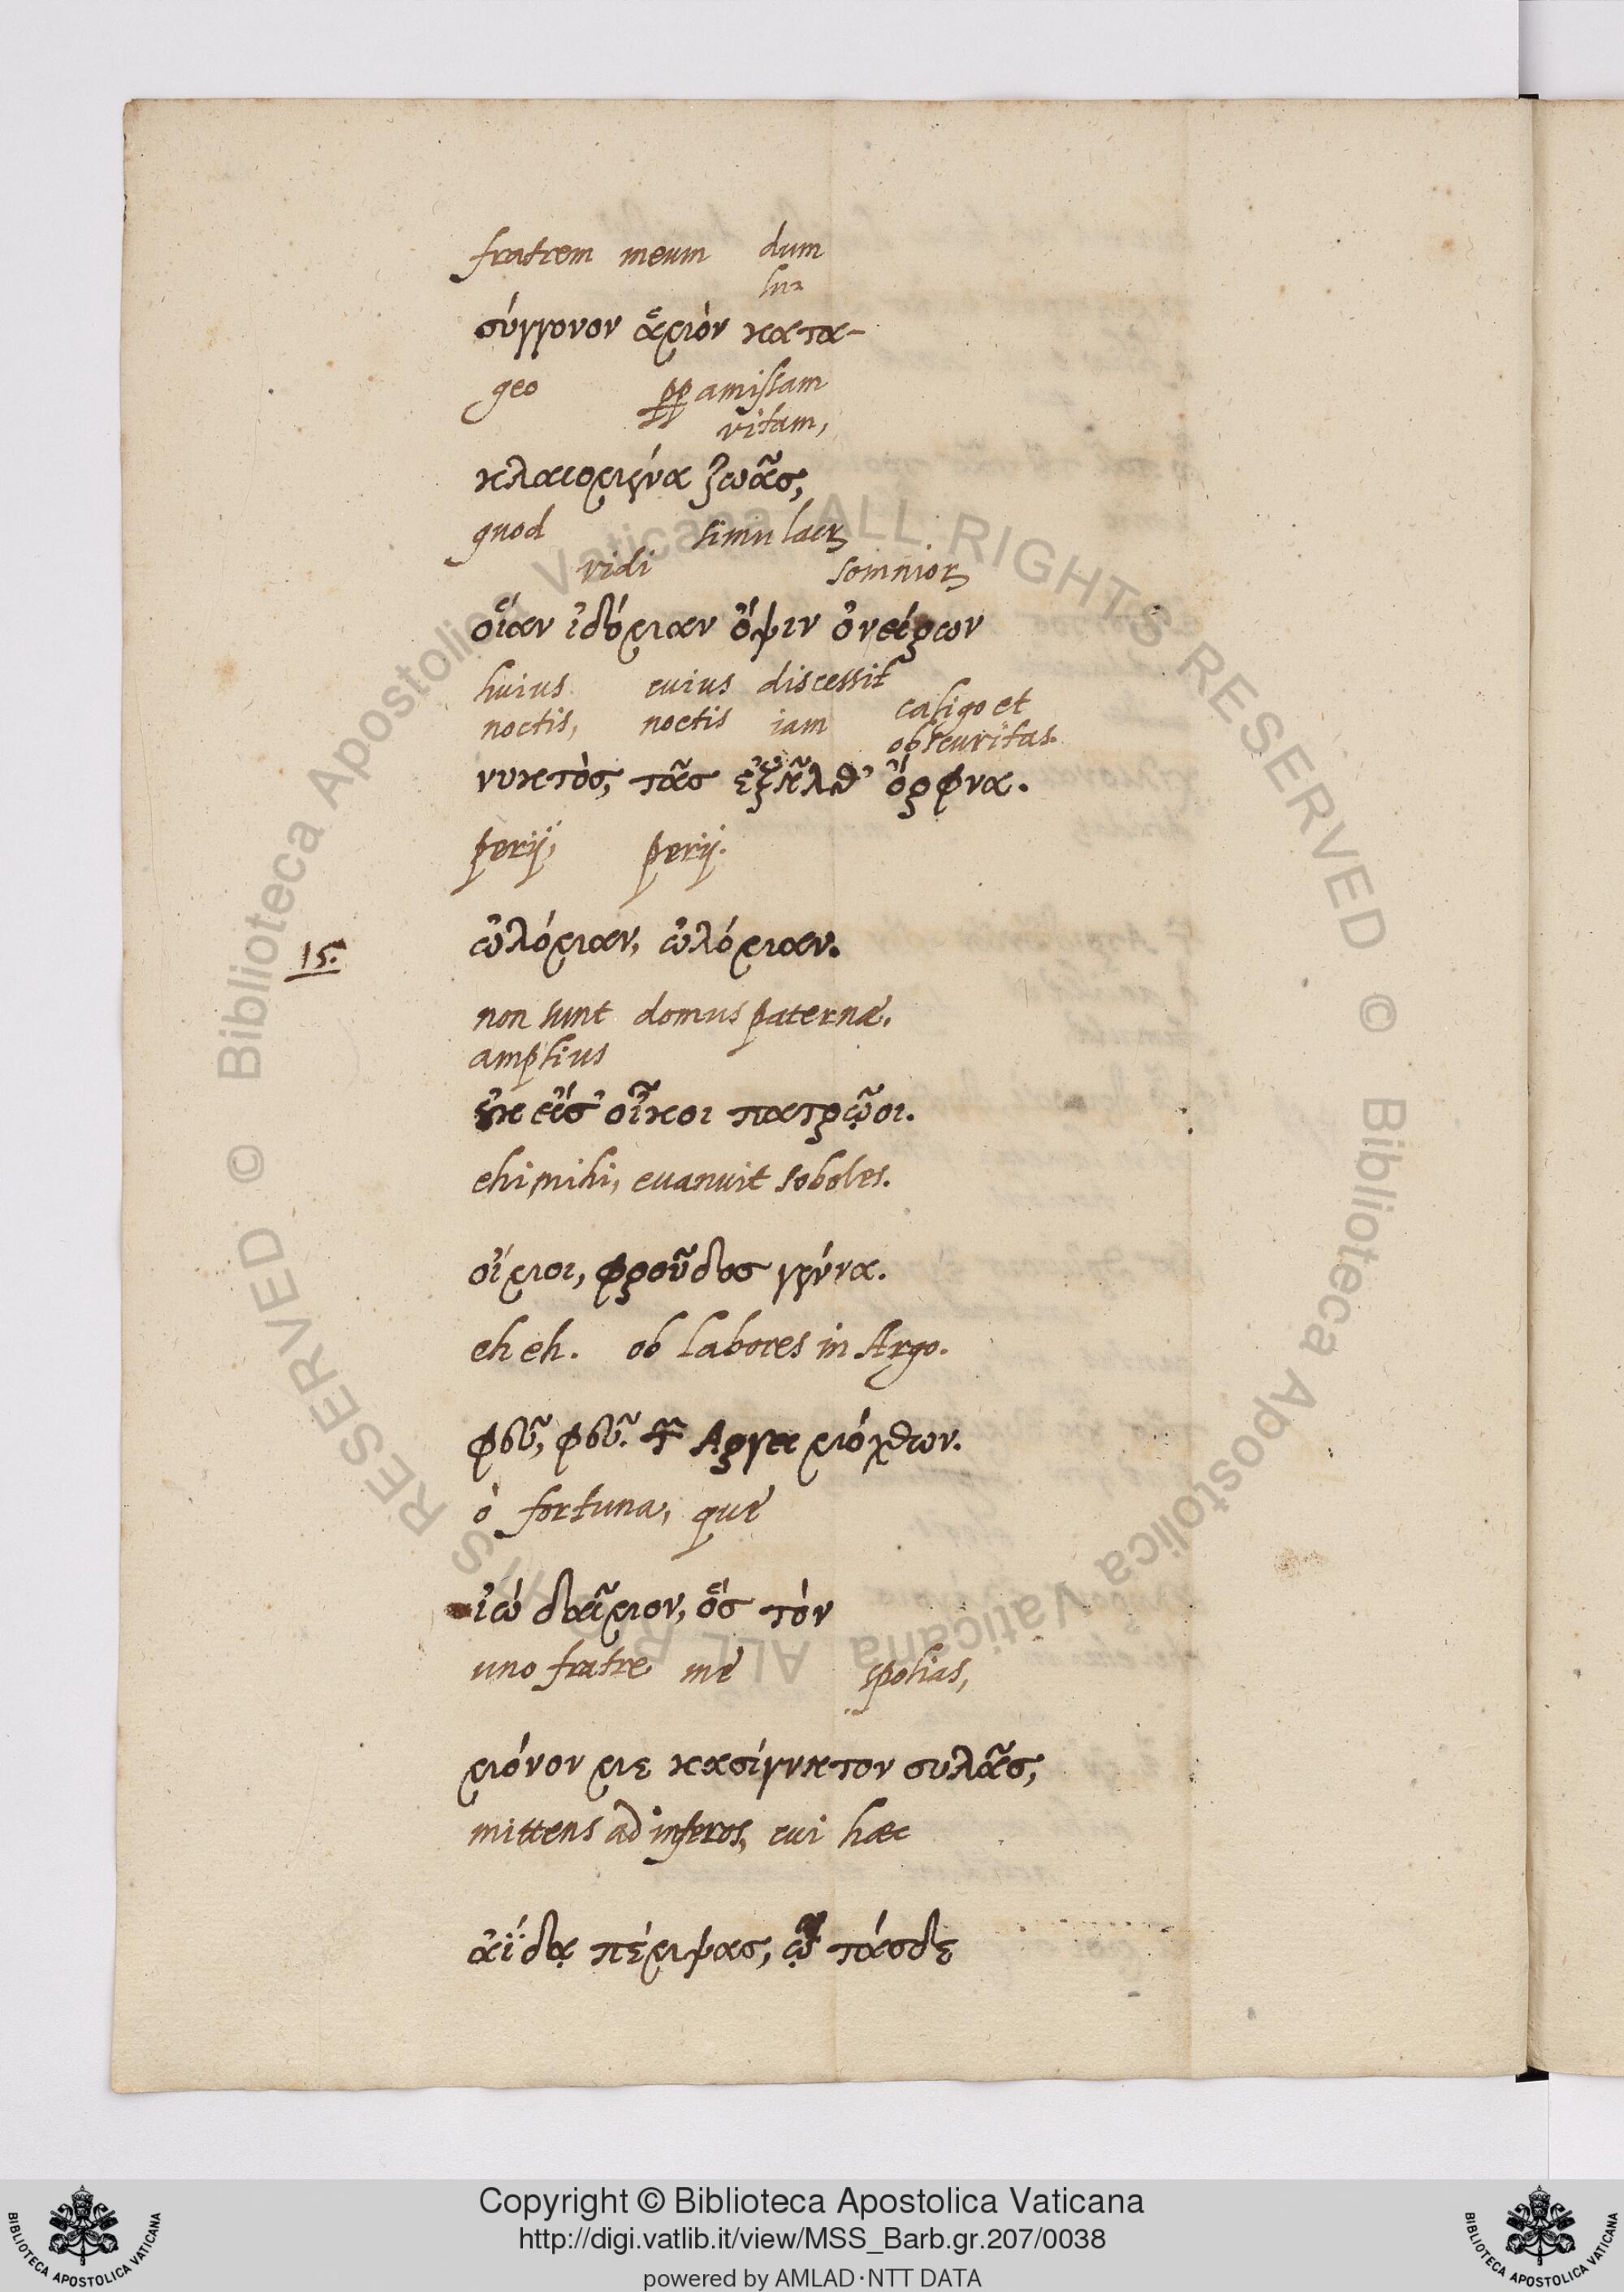 fratrem meum dum
lu-
σύγγονον ἅμὸν κατα-
geo pp amissam
vitam,
κλαιομένα ζωᾶσ,
quod simulacr
vidi somnior
οἵαν ἰδόμαν ὄψιν ὀνείρων
huius cuius discessit caligo et
noctis, noctis iam obscuritas.
νυκτὸς, τᾶσ ἐξῆλθ' ὄρφνα.
perij, perij.
15. ὠλόμαν, ὠλόμαν.
non sunt domus paternæ.
amplius
οὐκ εἴσ' οἶκοι πατρῷοι.
ehi mihi, evanuit soboles.
οἴμοι, φροῦδοσ γέννα.
eh eh. ob labores in Argo.
φεῦ, φεῦ. τῶν Αργει μόχθων.
ò fortuna, que
ἰὼ δαῖμον, ὅσ τὸν
uno fratre me spolias,
μόνον με κασίγνητον συλᾶσ,
mittens ad inferos, cui hæc
ἀΐδᾳ πέμψασ, ᾧ τάσδε
Copyright © Biblioteca Apostolica Vaticana
http://digi.vatlib.it/view/MSS_Barb.gr.207/0038
powered by AMLAD·NTT DATA
BIBLIOTECA APOSTOLICA VATICANA
BIBLIOTECA APOSTOLICA VATICANA
© Biblioteca Apostolica Vaticana ALL RIGHTS RESERVED
© Biblioteca Apostolica Vaticana ALL RIGHTS RESERVED